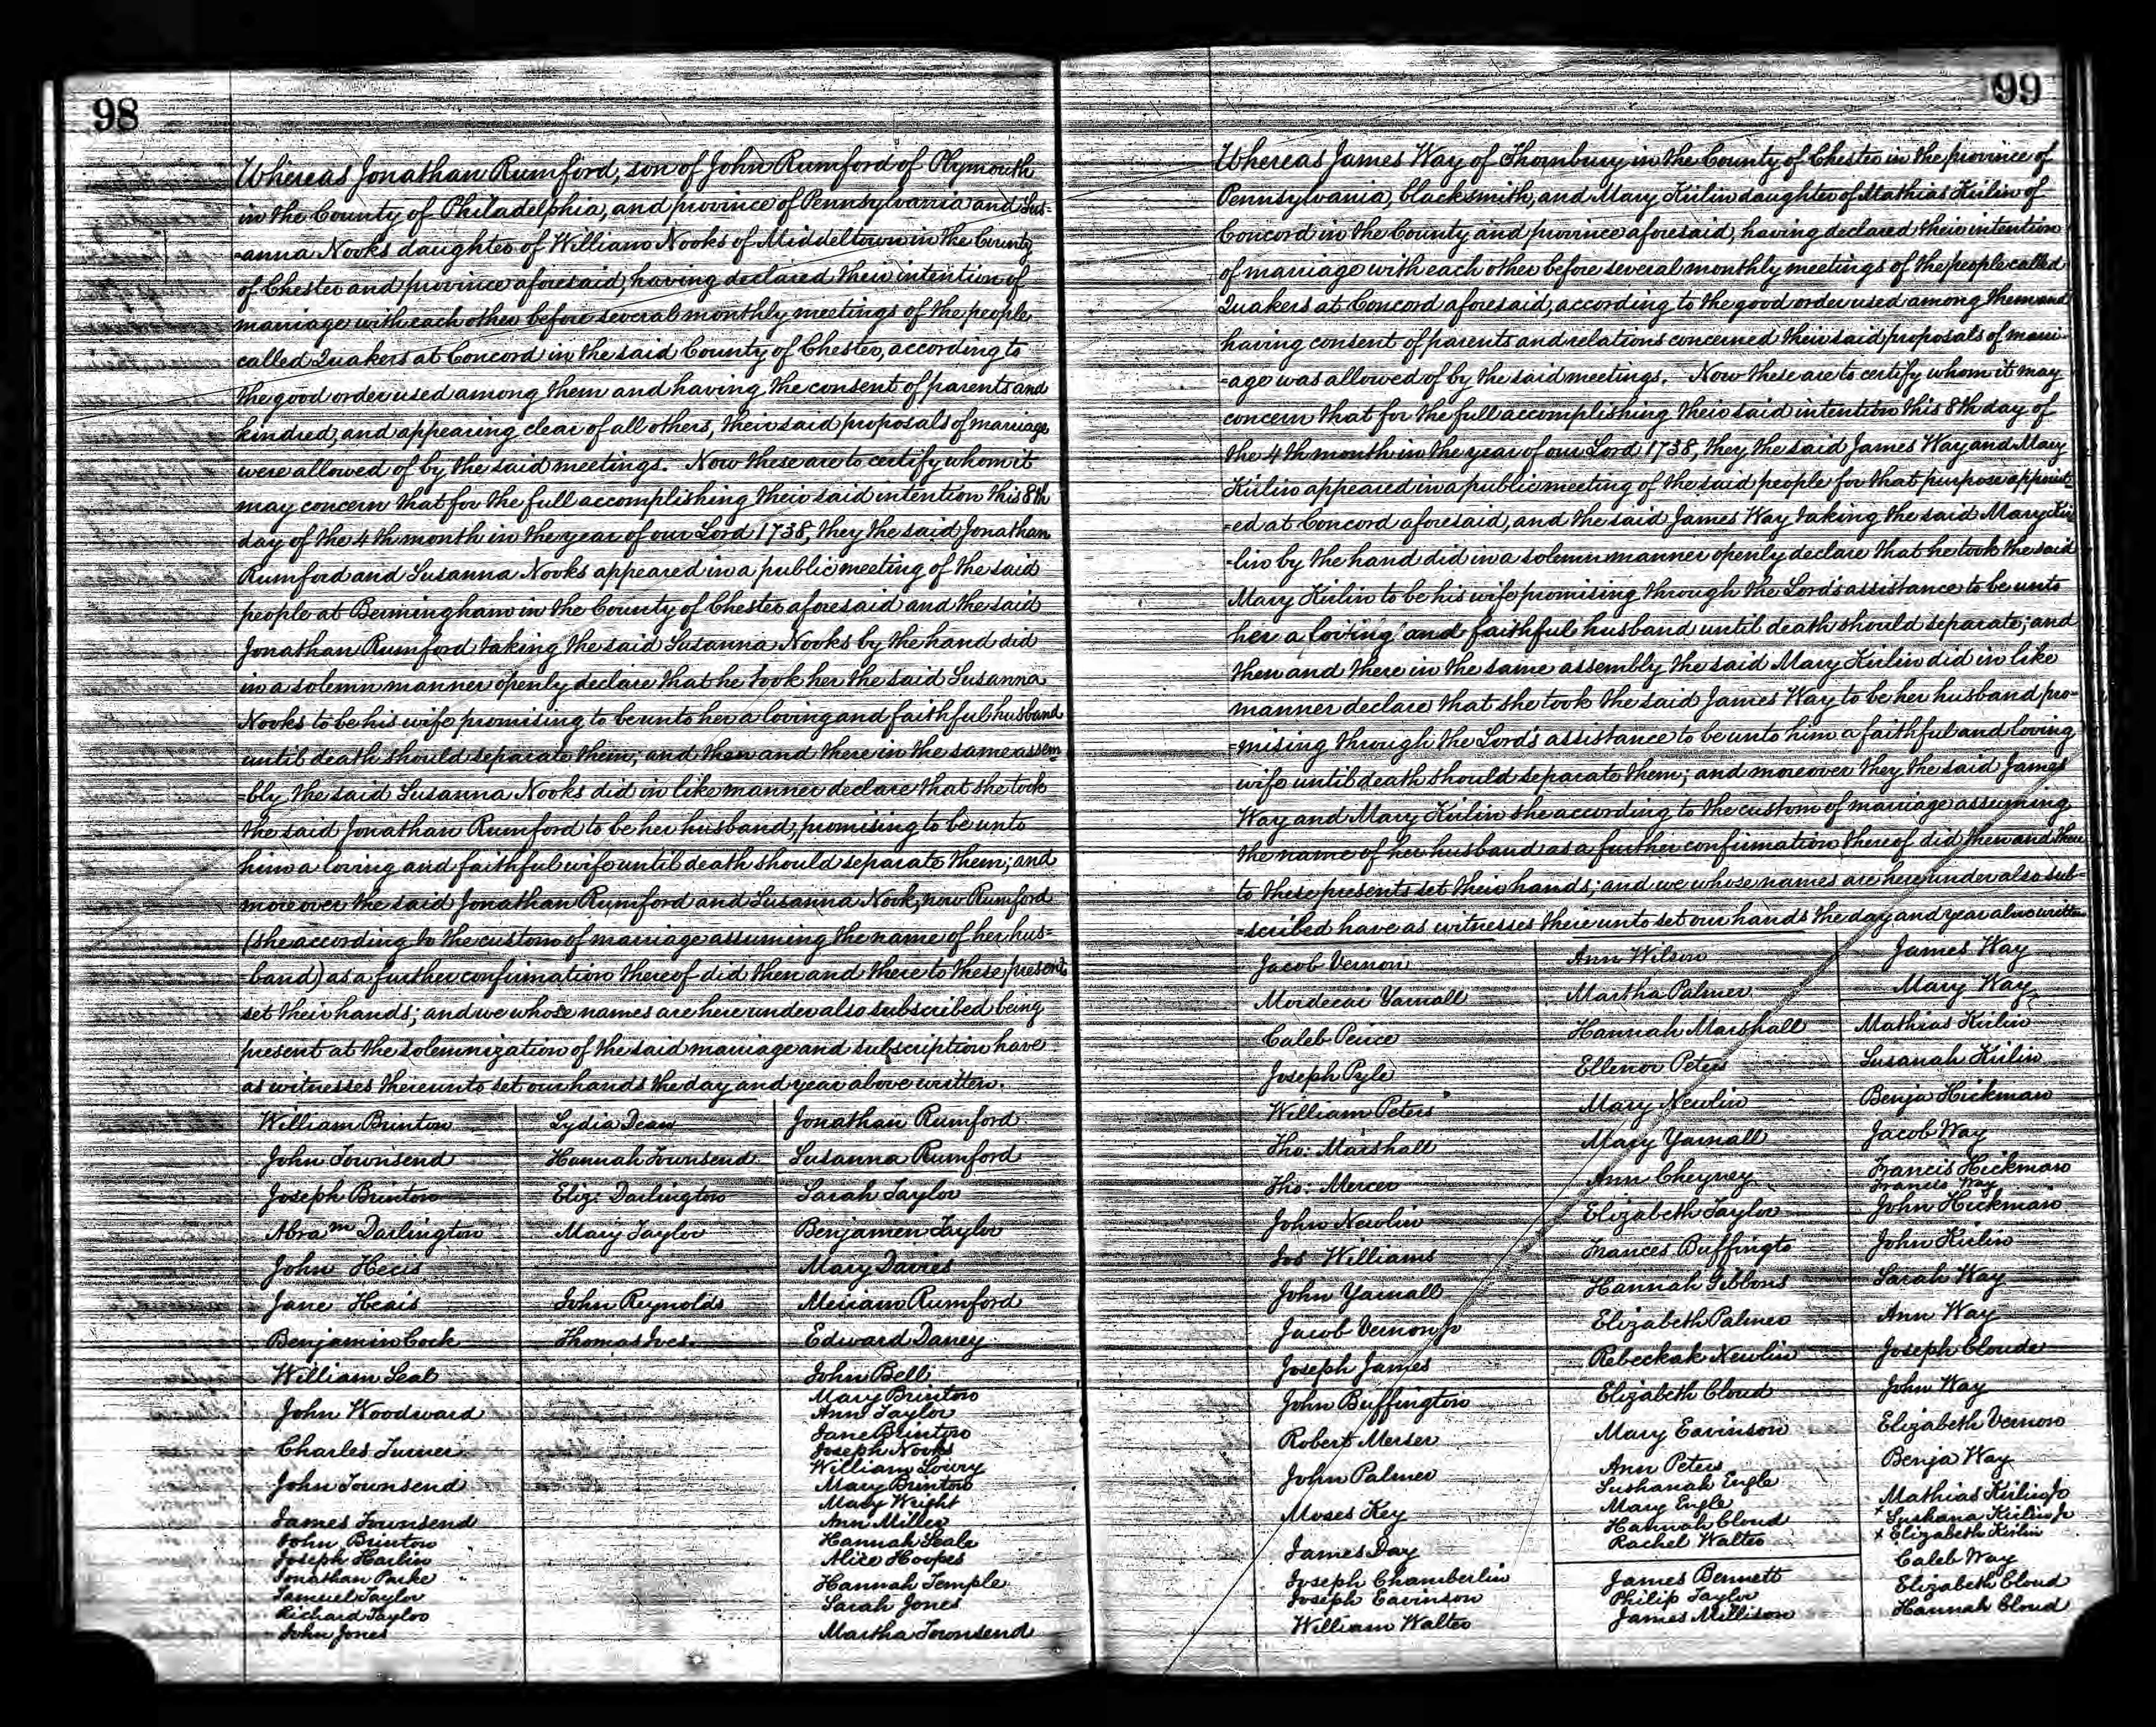 98
Whereas Jonathan Rumford, son of John Rumford of Plymouth
in the County of Philadelphia, and province of Pennsylvania and Sus-
-anna Nooks daughter of William Nooks of Middeltown in the County
of Chester and province aforesaid, having declared their intention of
marriage with each other before several monthly meetings of the people
called Quakers at Concord in the said County of Chester, according to
the good order used among them and having the consent of parents and
kindred, and appearing clear of all others, their said proposals of marriage
were allowed of by the said meetings. Now these are to certify whom it
may concern that for the full accomplishing their said intention this 8th
day of the 4th month in the year of our Lord 1738, they the said Jonathan
Rumford and Susanna Nooks appeared in a public meeting of the said
people at Bermingham in the County of Chester aforesaid and the said
Jonathan Rumford taking the said Susanna Nooks by the hand did
in a solemn manner openly declare that he took her the said Susanna
Nooks to be his wife promising to be unto her a loving and faithful husband
until death should separate them; and then and there in the same assem
-bly the said Susanna Nooks did in like manner declare that she took
the said Jonathan Rumford to be her husband, promising to be unto
him a loving and faithful wife until death should separate them; and
moreover the said Jonathan Rumford and Susanna Nook, now Rumford
(she according to the custom of marriage assuming the name of her hus=
-band) as a further confirmation thereof did then and there to these presents
set their hands; and we whose names are here under also subscribed being
present at the solemnization of the said marriage and subscription have
as witnesses thereunto set our hands the day and year above written.
William Brinton
John Townsend
Joseph Brinton
Abram Darlington
John Hecis
Jane Heais
Benjamin Cock
William Seal
John Woodward
Charles Turner
John Townsend
James Townsend
John Brinton
Joseph Harlin
Jonathan Parke
Samuel Taylor
Richard Taylor
John Jones
Lydia Dean
Hannah Townsend
Eliz: Darlington
Mary Taylor
John Reynolds
Thomas Ives
Jonathan Rumford
Susanna Rumford
Sarah Taylor
Benjamen Taylor
Mary Davies
Meriam Rumford
Edward Daney
John Bell
Mary Brinton
Ann Taylor
Jane Brinton
Joseph Nooks
William Lowry
Mary Brinton
Mary Wright
Ann Miller
Hannah Seale
Alice Hoopes
Hannah Temple
Sarah Jones
Martha Townsend
99
Whereas James Way of Thornbury in the County of Chester in the province of
Pennsylvania, blacksmith, and Mary Kirlin daughter of Mathias Kirlin of
Concord in the County and province aforesaid, having declared their intention
of marriage with each other before several monthly meetings of the people called
Quakers at Concord aforesaid, according to the good order used among them and
having consent of parents and relations concerned their said proposals of marri-
-age was allowed of by the said meetings. Now these are to certify whom it may
concern that for the full accomplishing their said intention this 8th day of
the 4th month in the year of our Lord 1738, they the said James Way and Mary
Kirlin appeared in a public meeting of the said people for that purpose appoint-
-ed at Concord aforesaid, and the said James Way taking the said Mary Kir
-lin by the hand did in a solemn manner openly declare that he took the said
Mary Kirlin to be his wife promising through the Lord's assistance to be unto
her a loving and faithful husband until death should separate; and
then and there in the same assembly the said Mary Kirlin did in like
manner declare that she took the said James Way to be her husband pro-
=mising through the Lord's assistance to be unto him a faithful and loving
wife until death should separate them; and moreover they the said James
Way and Mary Kirlin she according to the custom of marriage assuming
the name of her husband as a further confirmation thereof did then and there
to these presents set their hands; and we whose names are here under also sub=
-scribed have as witnesses there unto set our hands the day and year above written
Jacob Vernon
Mordecai Yarnall
Caleb Peirce
Joseph Pyle
William Peters
Tho: Marshall
Tho: Mercer
John Newlin
Jos Williams
John Yarnall
Jacob Vernon Jr
Joseph James
John Buffington
Robert Merser
John Palmer
Moses Key
James Day
Joseph Chamberlin
Joseph Eavinson
William Walter
Ann Wilson
Martha Palmer
Hannah Marshall
Ellenor Peters
Mary Newlin
Mary Yarnall
Ann Cheyney
Elizabeth Taylor
Frances Buffingto
Hannah Gibbons
Elizabeth Palmer
Rebeckah Newlin
Elizabeth Cloud
Mary Eavinson
Ann Peters
Sushanah Engle
Mary Engle
Hannah Cloud
Rachel Walter
James Bennett
Philip Taylor
James Millison
James Way
Mary Way
Mathias Kirlin
Susanah Kirlin
Benja Hickman
Jacob Way
Francis Hickman
Francis Way
John Hickman
John Kirlin
Sarah Way
Ann Way
Joseph Cloude
John Way
Elizabeth Vernon
Benja Way
Mathias Kirlin Jr
x Sushana Kirlin Jr
x Elizabeth Kirlin
Caleb Way
Elizabeth Cloud
Hannah Cloud